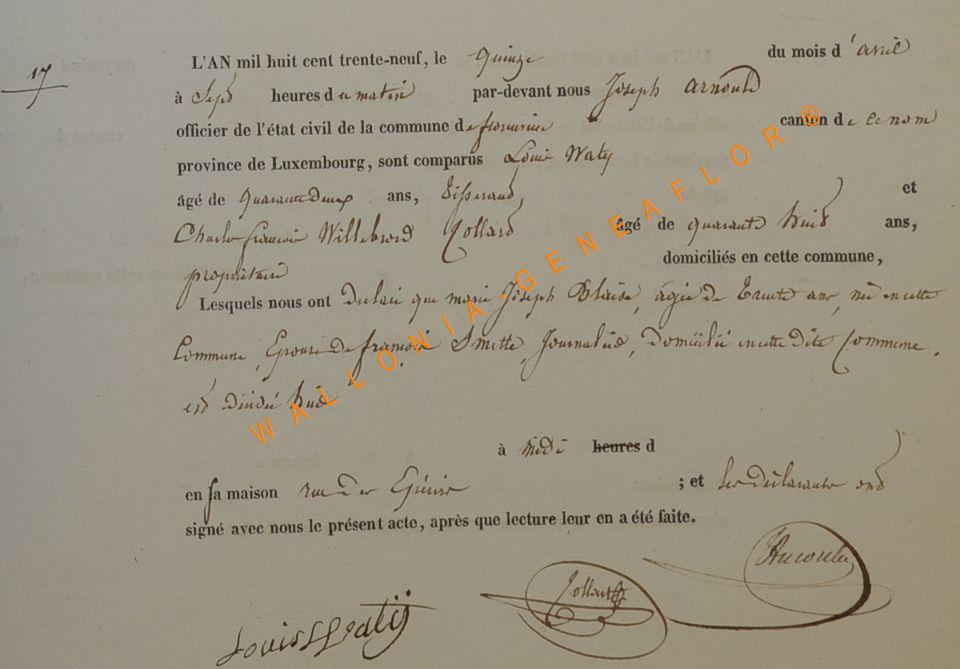 17
L'AN mil huit cent trente-neuf, le quinze du mois d'avril
à sept heures du matin par-devant nous Joseph Arnould
officier de l'état civil de la commune de canton de
province de Luxembourg, sont comparus Louis Waty
âgé de quarante deux ans, tisserand, et
Charles françois Willebrord Collard âgé de quarante huit ans,
propriétaire domiciliés en cette commune,
Lesquels nous ont déclaré que marie Joseph Blaise, âgée de trente ans, née en cette
Commune, Epouse de françois Smette, Journalier, domicilié en cette dite Commune,
est décédée hier
à midi heures d
en sa maison rue des ; et les déclarants ont
signé avec nous le présent acte, après que lecture leur en a été faite.
WALLONIA-GENEAFLOR ®
Louis Watÿ Collard